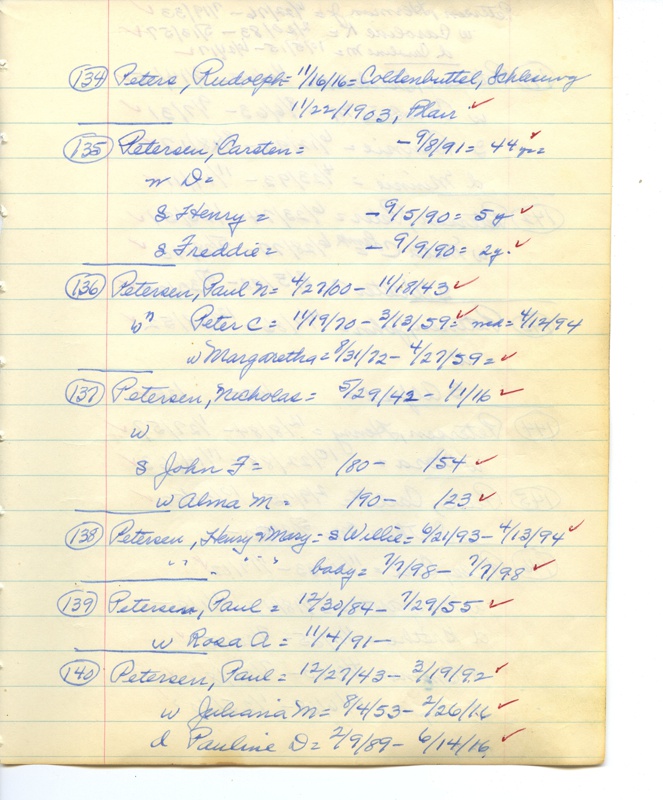 134 Peters, Rudolph = 11/16/16 = Coldenbuttel, Schleswig
11/22/1903, Pharr ✓
135 Petersen, Carsten = - 9/8/91 = 44 yrs ✓
w D =
s Henry = - 9/5/90 = 5 y ✓
s Freddie = - 9/9/90 = 2 y. ✓
136 Petersen, Paul N = 4/27/00 - 11/18/43 ✓
" Peter C = 11/19/70 - 3/13/59 = ✓ md = 4/12/94
w Margaretha = 8/31/72 - 4/27/59 = ✓
137 Petersen, Nicholas = 5/29/42 - 1/1/16 ✓
w
s John F = /80 - /54 ✓
w Alma M = /90 - /23 ✓
138 Petersen, Henry & Mary = s Willie = 6/21/93 - 4/13/94 ✓
" " " " baby = 7/7/98 - 7/7/98 ✓
139 Petersen, Paul = 12/30/84 - 7/29/55 ✓
w Rosa A = 11/4/91 -
140 Petersen, Paul = 12/27/43 - 3/19/92 ✓
w Juliana M = 8/4/53 - 2/26/16 ✓
d Pauline D = 2/9/89 - 6/14/16 ✓